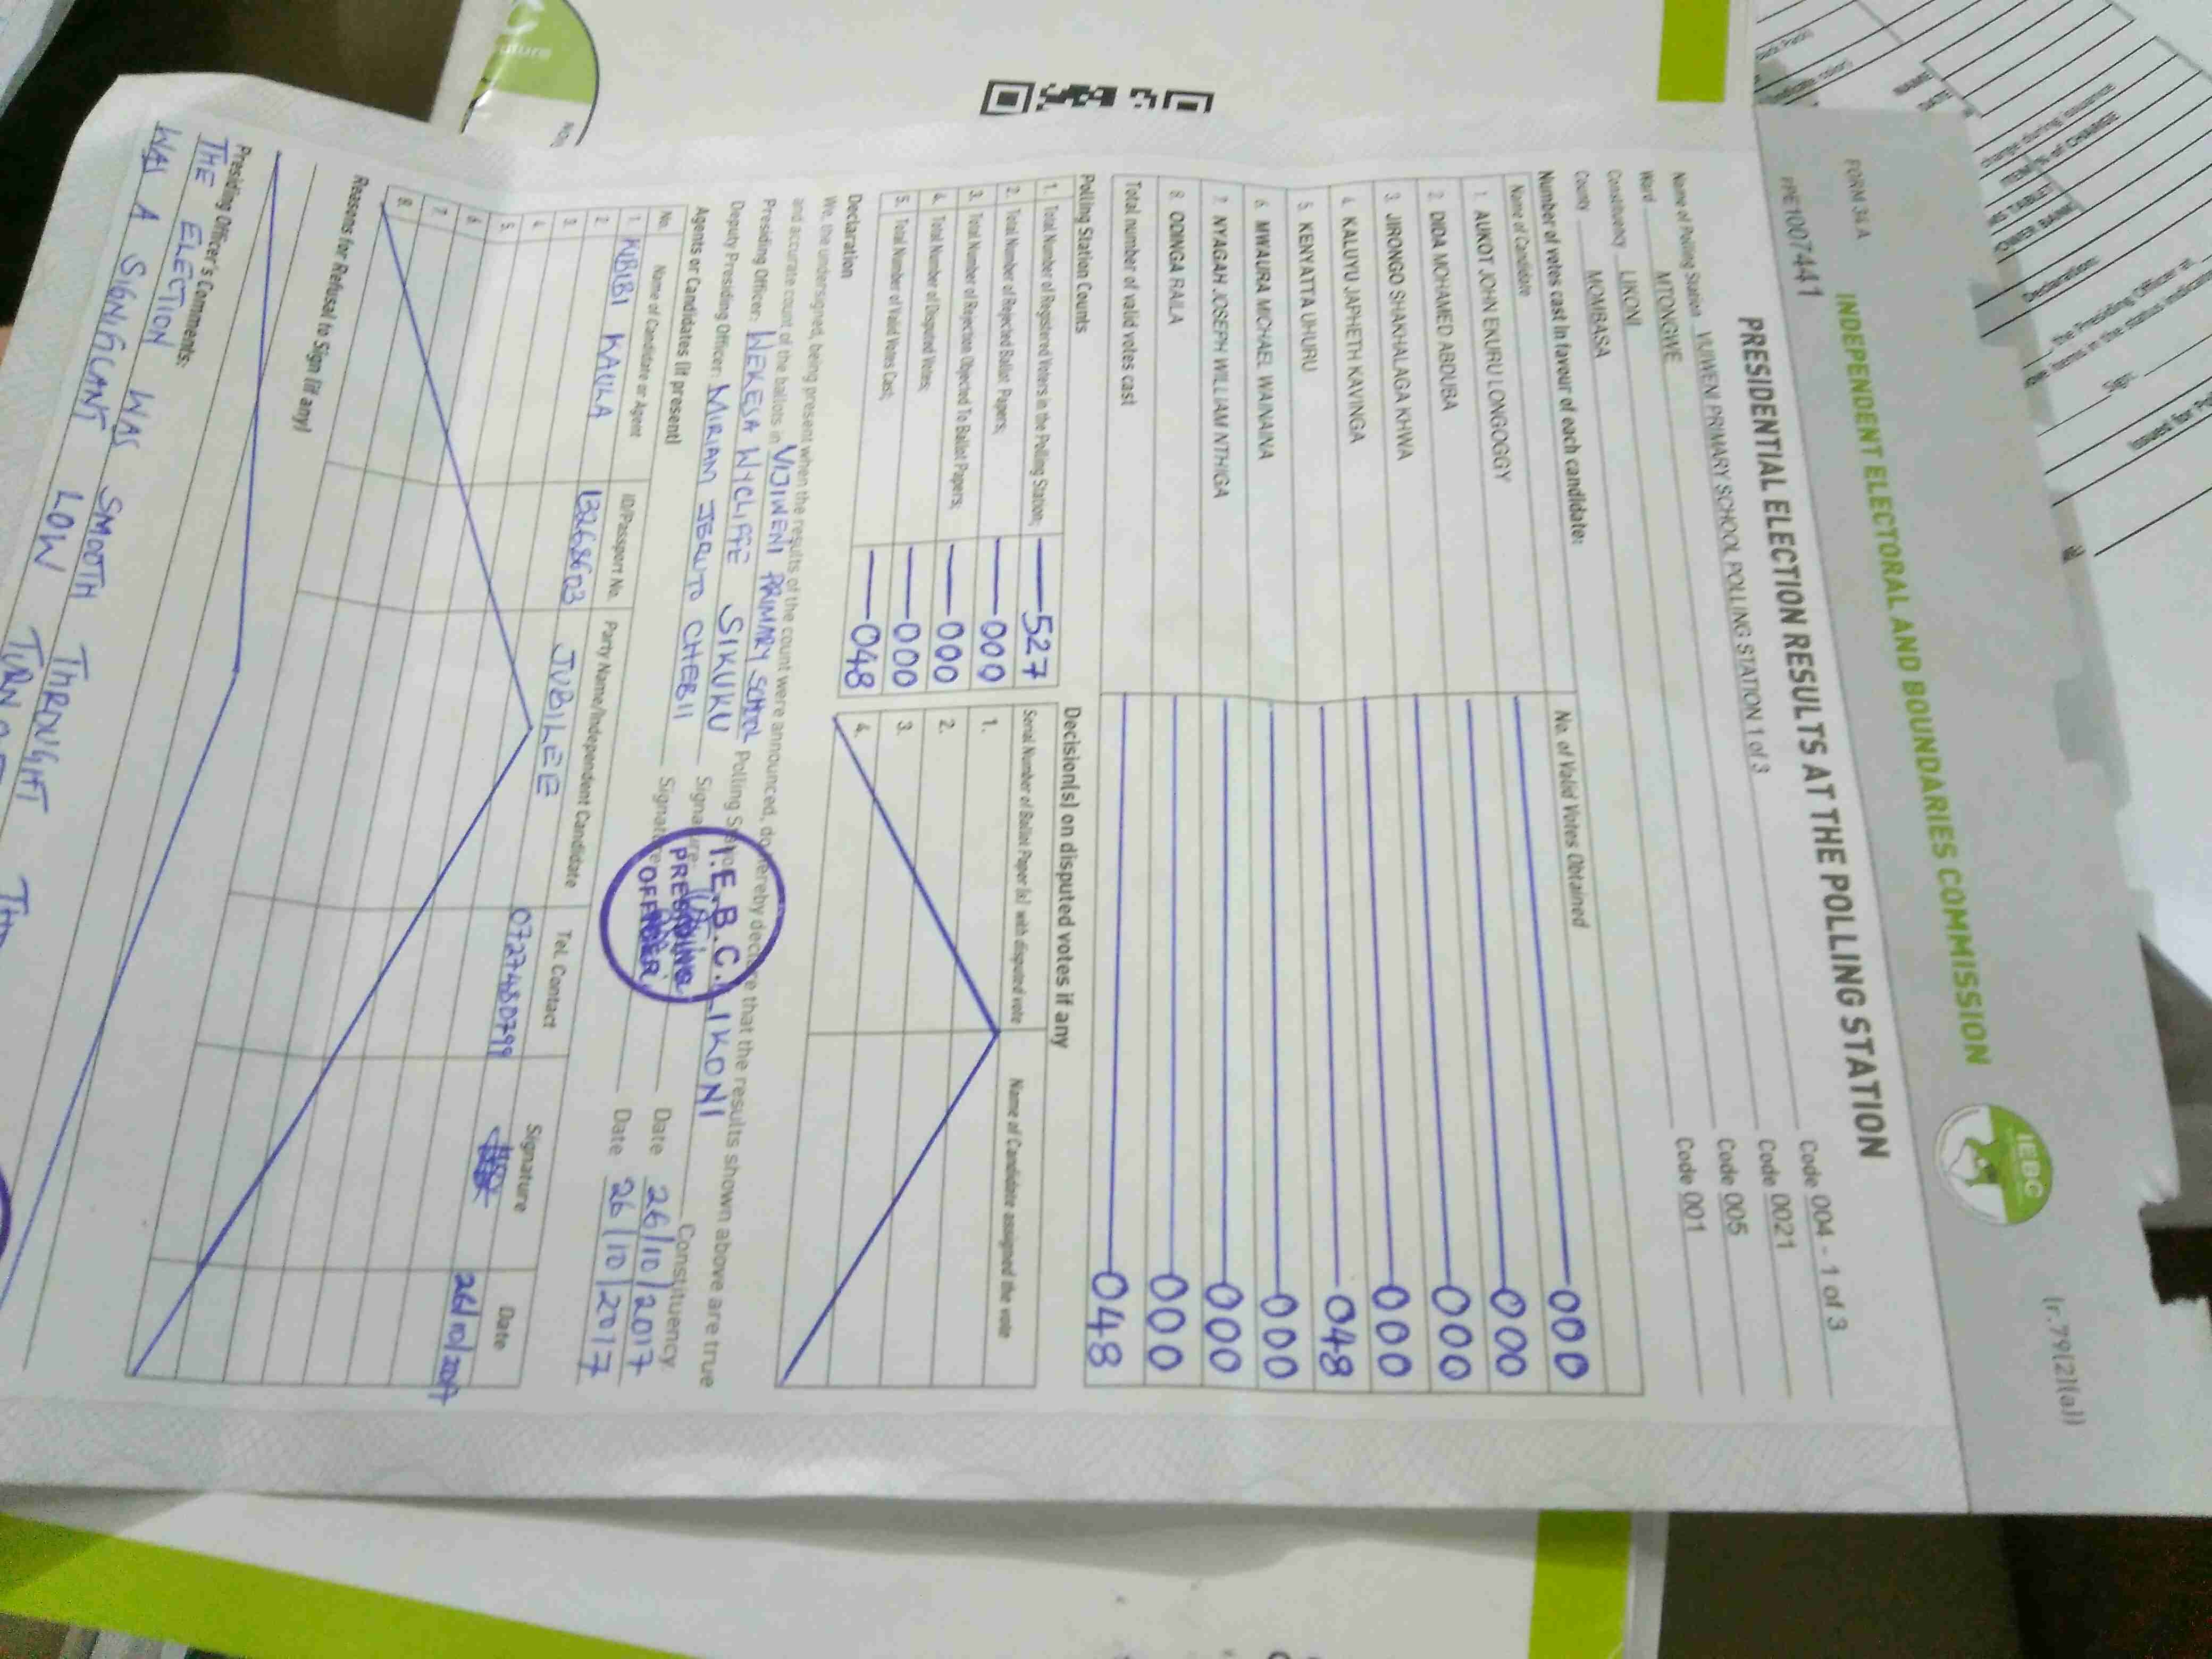 FORM 34A
(r.79(2)(a))
INDEPENDENT ELECTORAL AND BOUNDARIES COMMISSION
IEBC
PPE1007441
PRESIDENTIAL ELECTION RESULTS AT THE POLLING STATION
Name of Polling Station VIJIWENI PRIMARY SCHOOL POLLING STATION 1 of 3 Code 004 - 1 of 3
Ward MTONGWE Code 0021
Constituency LIKONI Code 005
County MOMBASA Code 001
Number of votes cast in favour of each candidate:
Name of Candidate No. of Valid Votes Obtained
1. AUKOT JOHN EKURU LONGOGGY 000
2. DIDA MOHAMED ABDUBA 000
3. JIRONGO SHAKHALAGA KHWA 000
4. KALUYU JAPHETH KAVINGA 000
5. KENYATTA UHURU 048
6. MWAURA MICHAEL WAINAINA 000
7. NYAGAH JOSEPH WILLIAM NTHIGA 000
8. ODINGA RAILA 000
Total number of valid votes cast 048
Polling Station Counts
1. Total Number of Registered Voters in the Polling Station; 527
2. Total Number of Rejected Ballot Papers; 000
3. Total Number of Rejection Objected To Ballot Papers; 000
4. Total Number of Disputed Votes; 000
5. Total Number of Valid Votes Cast; 048
Decision(s) on disputed votes if any
Serial Number of Ballot Paper (s) with disputed vote Name of Candidate assigned the vote
1.
2.
3.
4.
Declaration
We, the undersigned, being present when the results of the count were announced, do hereby declare that the results shown above are true
and accurate count of the ballots in VIJIWENI PRIMARY SCHOOL Polling Station LIKONI Constituency
Presiding Officer: WEKESA WYCLIFFE SIKUKU Signature: Date 26/10/2017
Deputy Presiding Officer: MIRIAM JERUTO CHEBII Signature Date 26/10/2017
I.E.B.C.
PRESIDING
OFFICER
Agents or Candidates (if present)
No. Name of Candidate or Agent ID/Passport No. Party Name/Independent Candidate Tel. Contact Signature Date
1. KIBIBI KAULA 13268603 JUBILEE 0727480799 26/10/2017
2.
3.
4.
5.
6.
7.
8.
Reasons for Refusal to Sign (if any)
Presiding Officer's Comments:
THE ELECTION WAS SMOOTH THROUGHT
WAS A SIGNIFICANT LOW TURN